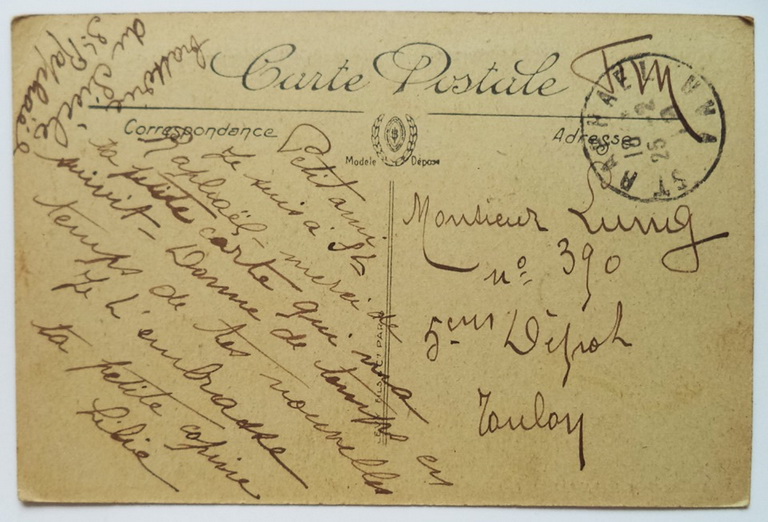 Carte Postale
Correspondance
Adresse
Modèle Déposé
Fm
ST RAPHAEL
18
25
Petit ami
Je suis à St
Raphaël, merci de
ta petite carte qui m'a
suivit - Donne de temps en
temps de tes nouvelles
Je t'embrasse
ta petite copine
Lilie
du Siècle
St Raphael
Monsieur Lung
n° 390
5ème Dépot
Toulon